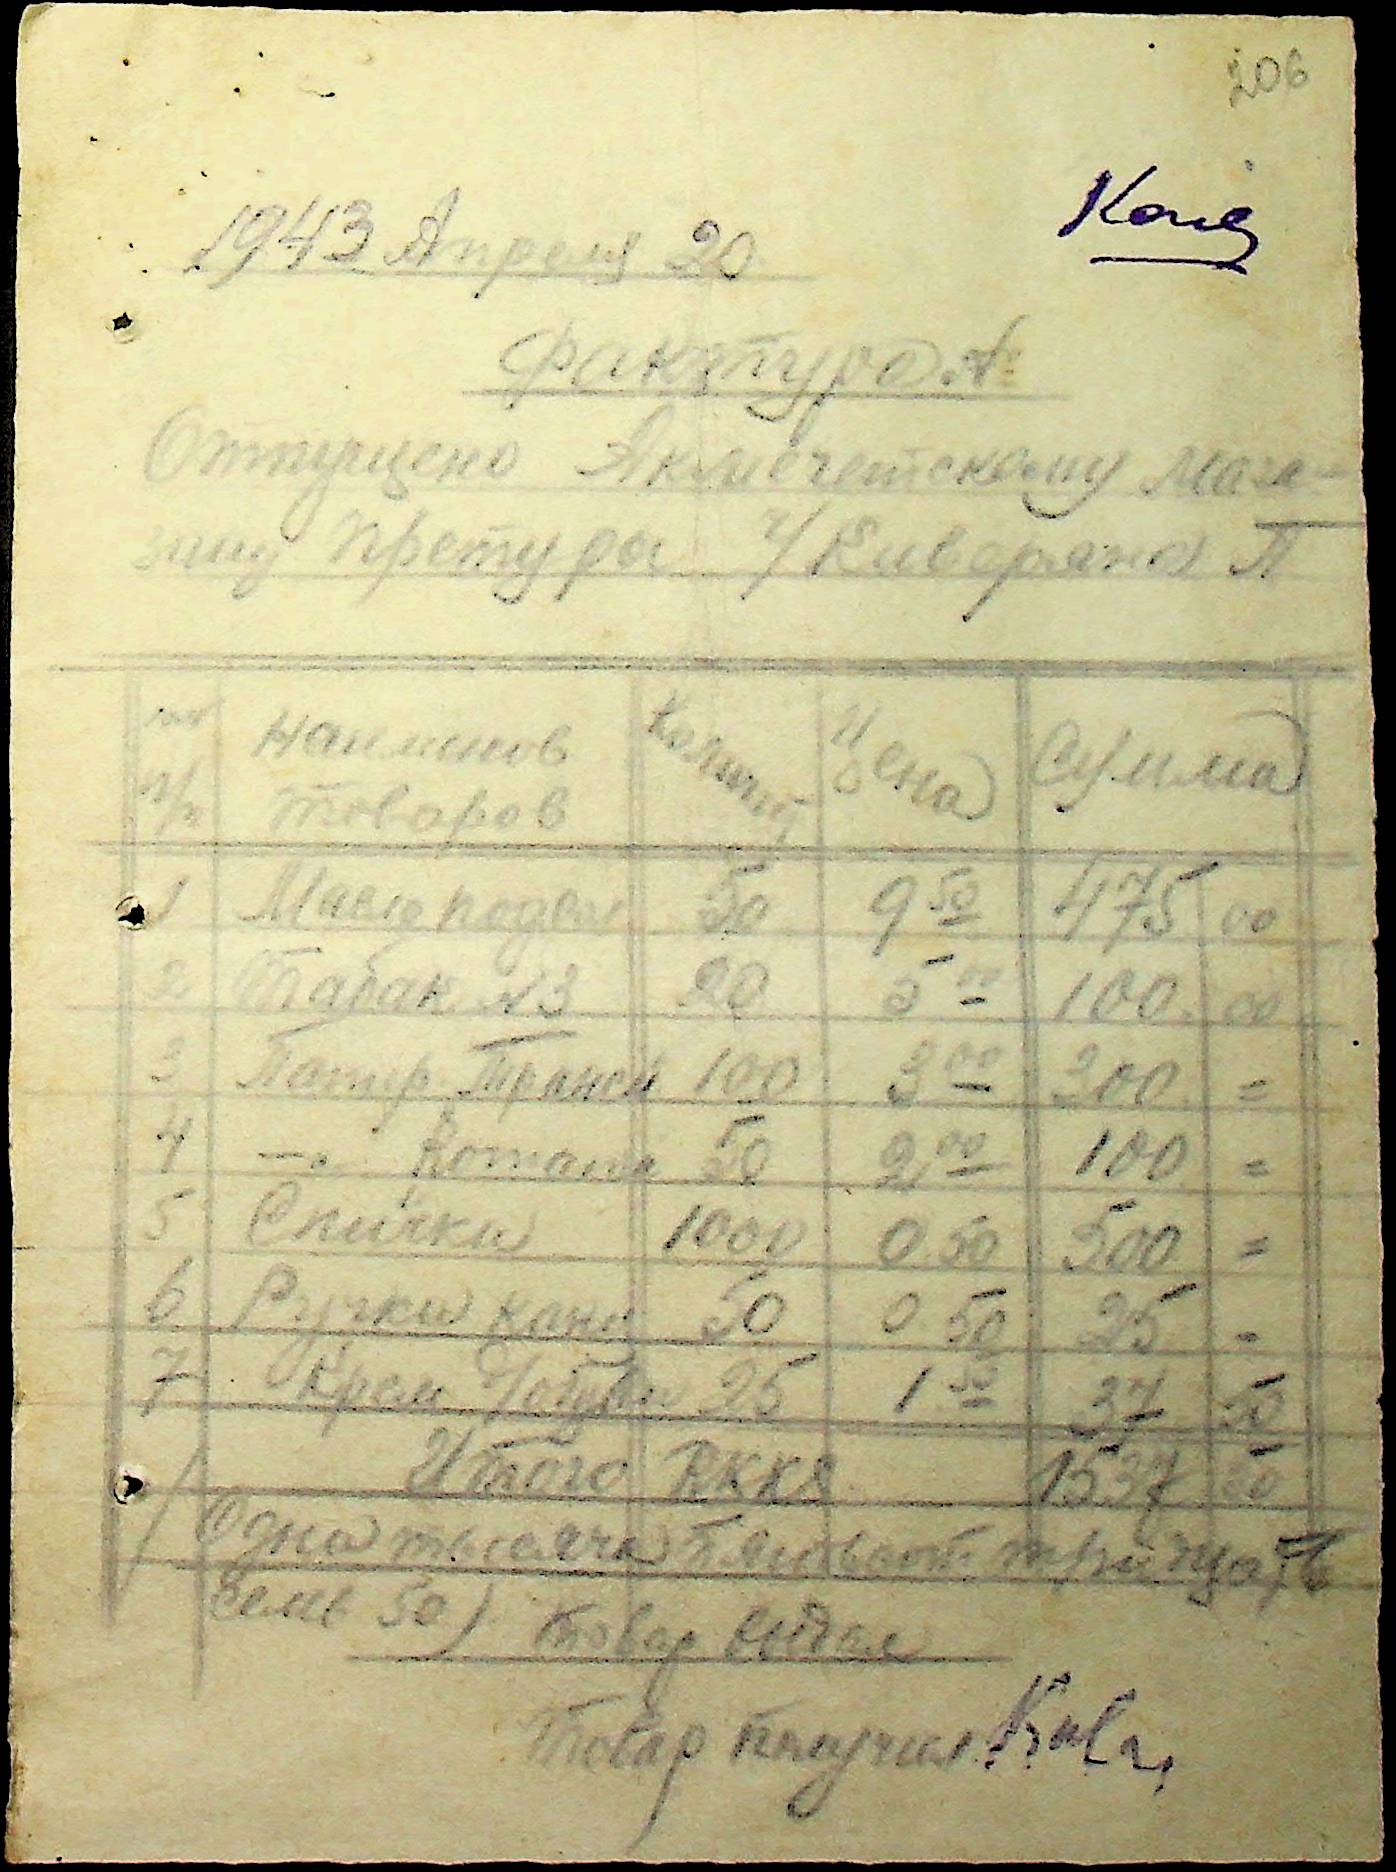 206
Копия
1943 Апреля 20
Фактура №
Отпущено Акмечетскому мага-
зину Претуры ч/ Киверяна П
№№ п/п наименов товаров Количест Цена Сумма
1 50 9 50 475 00
2 Табак №3 20 5 00 100. 00
3 Папир. Транси 100 3 00 300. =
4 —„— 50 2 00 100 =
5 Спички 1000 0.50 500 =
6 Ручки 50 0.50 25 =
7 Крем 25 1.50 37 50
Итого RKKS 1537 50
(Одна тысяча пятьсот тридцать
семь 50) Товар выдал
Товар получил